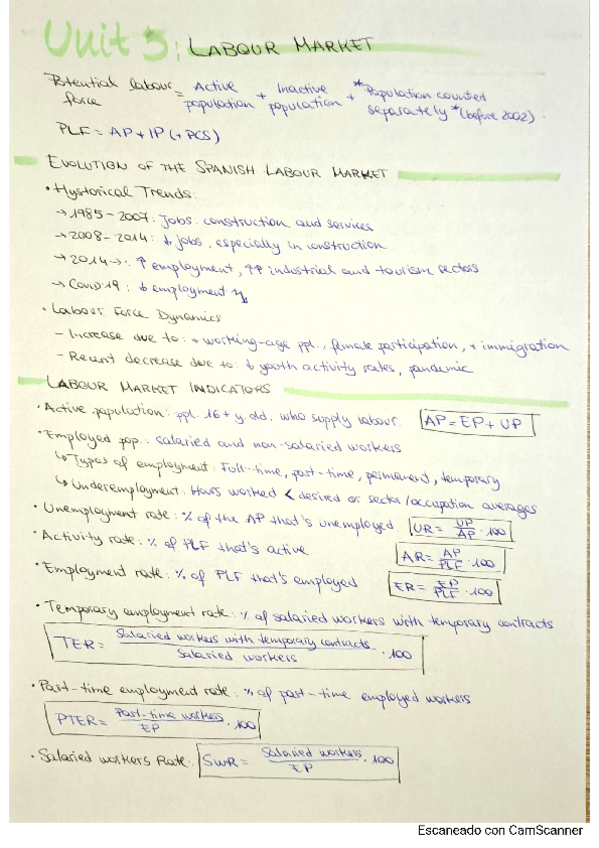 Unit 5: LABOUR MARKET
Potential labour force = Active population + Inactive population + *Population counted separately *(before 2002).
PLF = AP + IP (+ PCS)
EVOLUTION OF THE SPANISH LABOUR MARKET
• Hystorical Trends:
→ 1985-2007: Jobs: construction and services
→ 2008-2014: ↓ jobs, especially in construction
→ 2014→: ↑ employment, ↑↑ industrial and tourism sectors
→ Covid19: ↓ employment
• Labour Force Dynamics
- Increase due to: + working-age ppl., female participation, + immigration
- Recent decrease due to: ↓ youth activity rates, pandemic
LABOUR MARKET INDICATORS
• Active population: ppl. 16+ y.old. who supply labour. AP = EP + UP
• Employed pop.: salaried and non-salaried workers
↳ Types of employment: Full-time, part-time, permanent, temporary
↳ Underemployment: Hours worked < desired or sector/occupation averages
• Unemployment rate: % of the AP that's unemployed. UR = UP/AP · 100
• Activity rate: % of PLF that's active AR = AP/PLF · 100
• Employment rate: % of PLF that's employed ER = EP/PLF · 100
• Temporary employment rate: % of salaried workers with temporary contracts
TER = Salaried workers with temporary contracts / Salaried workers · 100
• Part-time employment rate: % of part-time employed workers
PTER = Part-time workers / EP · 100
• Salaried workers Rate: SWR = Salaried workers / EP · 100
Escaneado con CamScanner